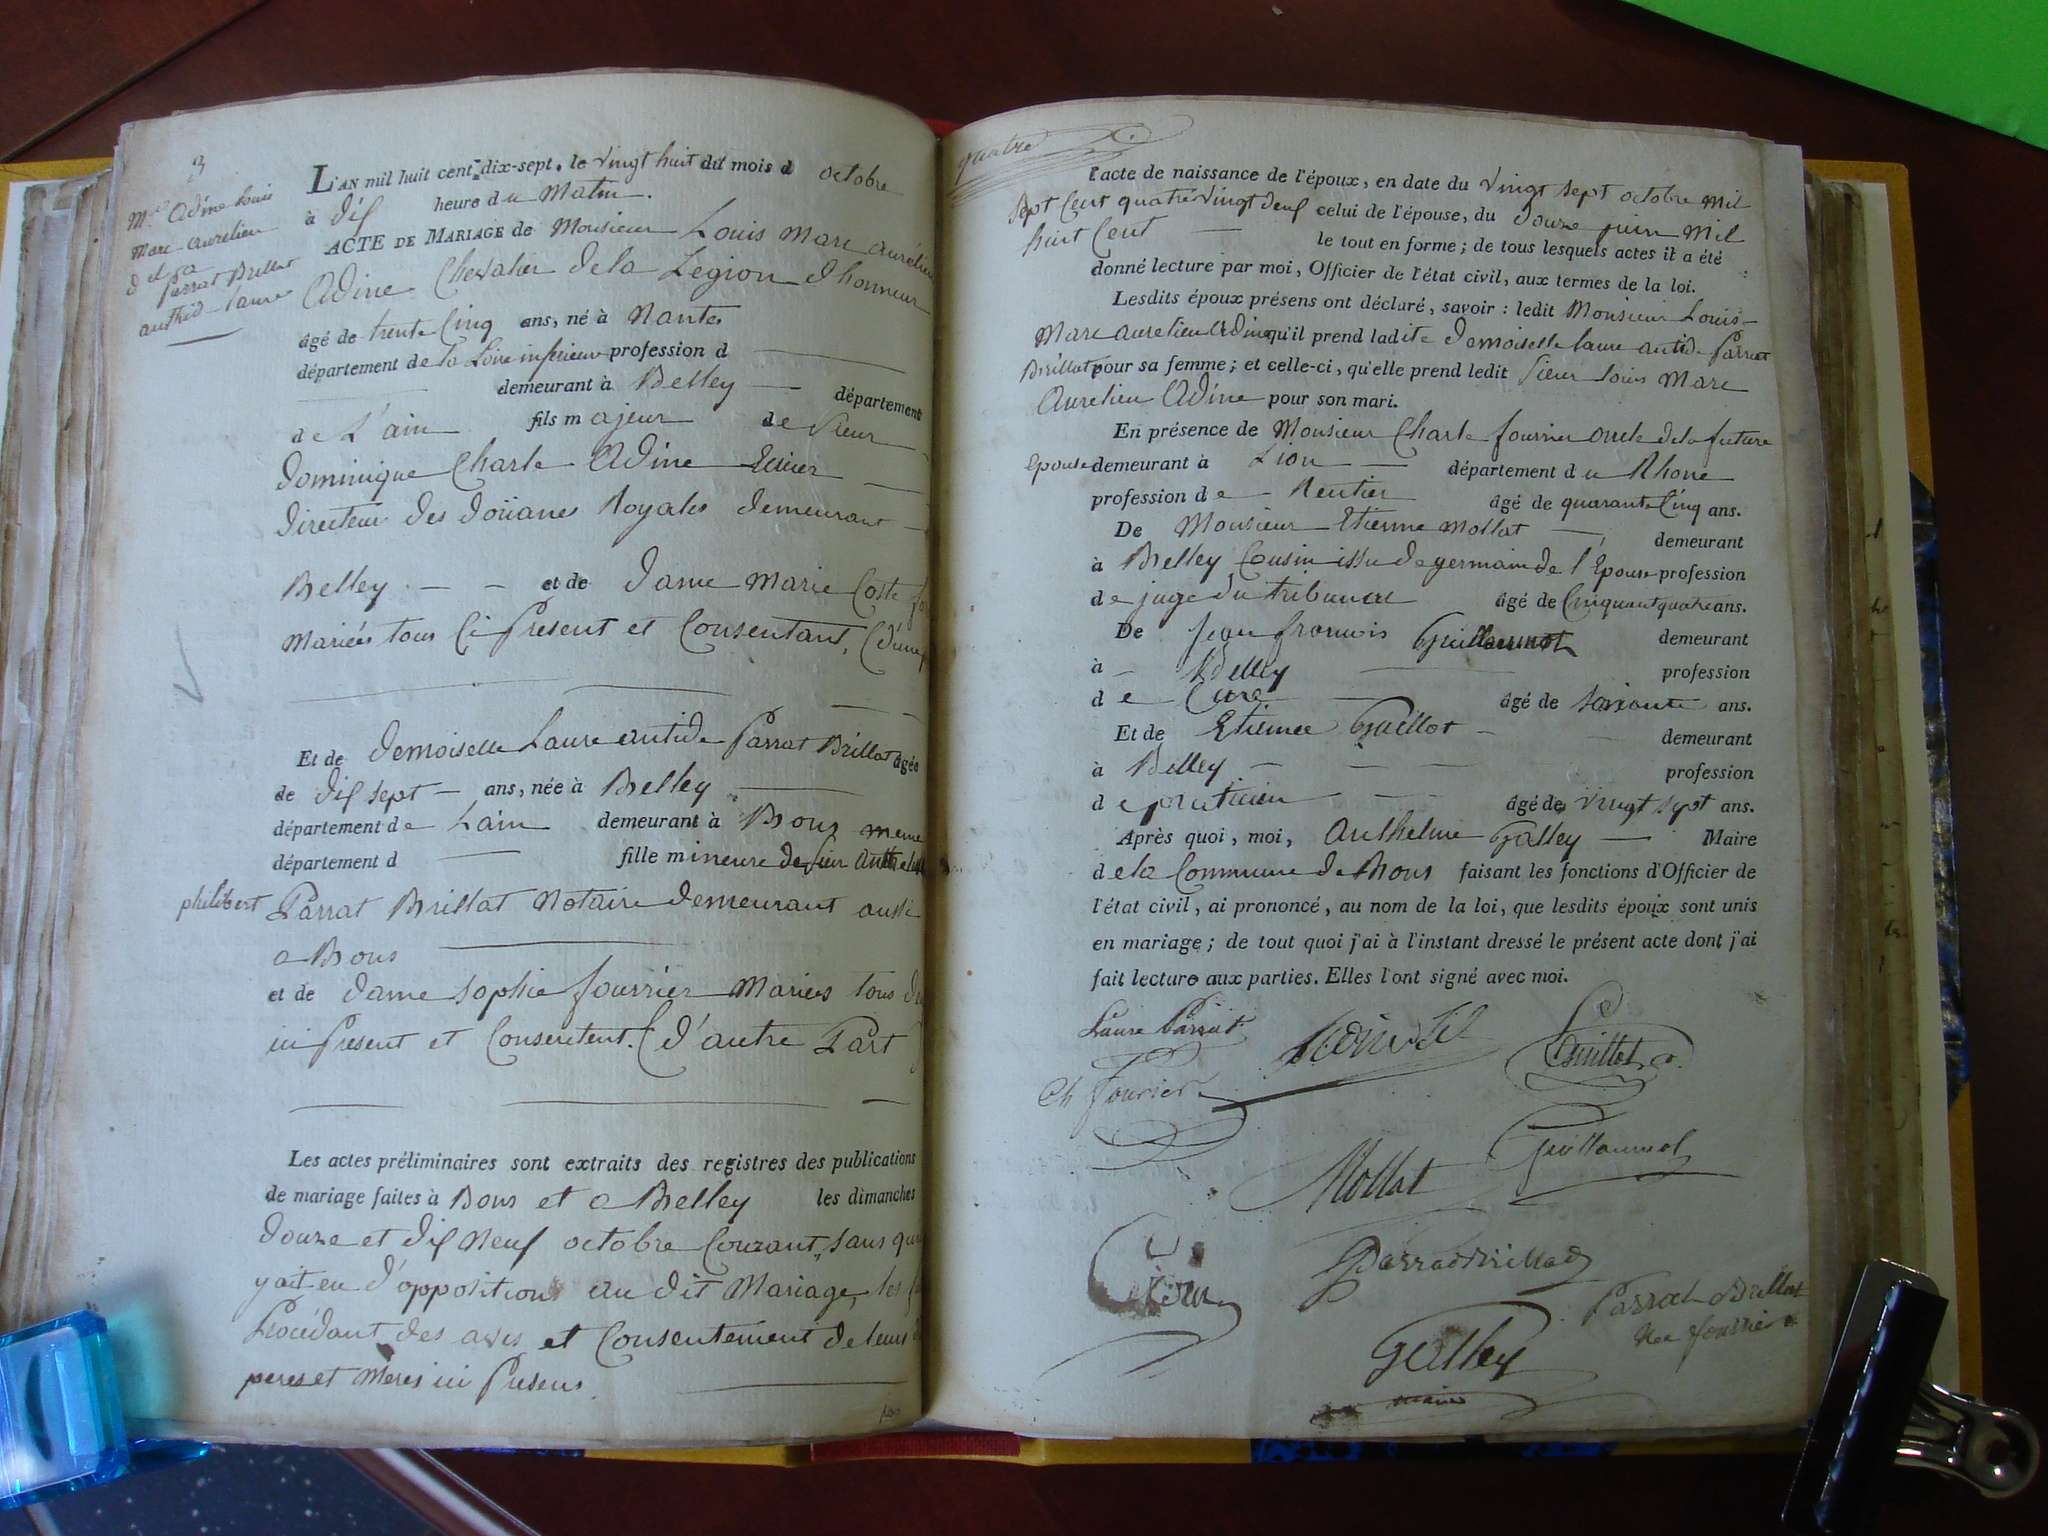 3
Mge Adine Louis
Marc aurelien
d et a
Parrat Brillat
Laure
L'AN mil huit cent dix-sept, le vingt huit du mois d octobre
à dix heure du Matin.
ACTE DE MARIAGE de Monsieur Louis Marc aurélien
Adine Chevalier de la Légion d honneur
âgé de trente Cinq ans, né à Nantes
département de la Loire inférieure profession d
demeurant à Belley département
de L'ain fils majeur de Sieur
dominique Charle Adine
directeur des doüanes Royales demeurant
Belley et de dame Marie Coste
Mariés tous Ci Présent et Consentant, (d'une
Et de demoiselle Laure antide Parrat Brillat âgée
de dix sept ans, née à Belley
département de Lain demeurant à Bons meme
département d fille mineure de Sieur
philibert Parrat Brillat Notaire demeurant aussi
a Bons
et de dame Sophie fourrier Mariés tous
ici Présent et Consentent. (d'autre Part
Les actes préliminaires sont extraits des registres des publications
de mariage faites à Bons et a Belley les dimanches
douze et dix Neuf octobre Courant, sans
y ait eu d'oppositions au dit Mariage, les
Procédant des avis et Consentement de leurs
peres et Meres ici Présens.
quatre
l'acte de naissance de l'époux, en date du vingt sept octobre mil
sept Cent quatre vingt deux celui de l'épouse, du douze juin Mil
huit Cent le tout en forme; de tous lesquels actes il a été
donné lecture par moi, Officier de l'état civil, aux termes de la loi.
Lesdits époux présens ont déclaré, savoir : ledit Monsieur Louis
Marc aurelien Adine qu'il prend ladite demoiselle Laure antide Parrat
Brillat pour sa femme; et celle-ci, qu'elle prend ledit Sieur Louis Marc
Aurelien Adine pour son mari.
En présence de Monsieur Charle fourrier oncle de la future
Epouse demeurant à Lion département du Rhone
profession de Rentier âgé de quarante Cinq ans.
De Monsieur Etienne Mollat demeurant
à Belley Cousin issu de germain de l'Epouse profession
de juge du tribunal âgé de Cinquant quatre ans.
De Jean francois Guillaumot demeurant
à Belley profession
de Cure âgé de soixante ans.
Et de Etienne Guillot demeurant
à Belley profession
de praticien âgé de vingt sept ans.
Après quoi, moi, Anthelme Galley Maire
de la Commune de Bons faisant les fonctions d'Officier de
l'état civil, ai prononcé, au nom de la loi, que lesdits époux sont unis
en mariage; de tout quoi j'ai à l'instant dressé le présent acte dont j'ai
fait lecture aux parties. Elles l'ont signé avec moi.
Laure Parrat
Guillot
Ch fourier
Guillaumot
Mollat
Parrat Brillat
Parrat Brillat
Nee fourrier
Galley
maire